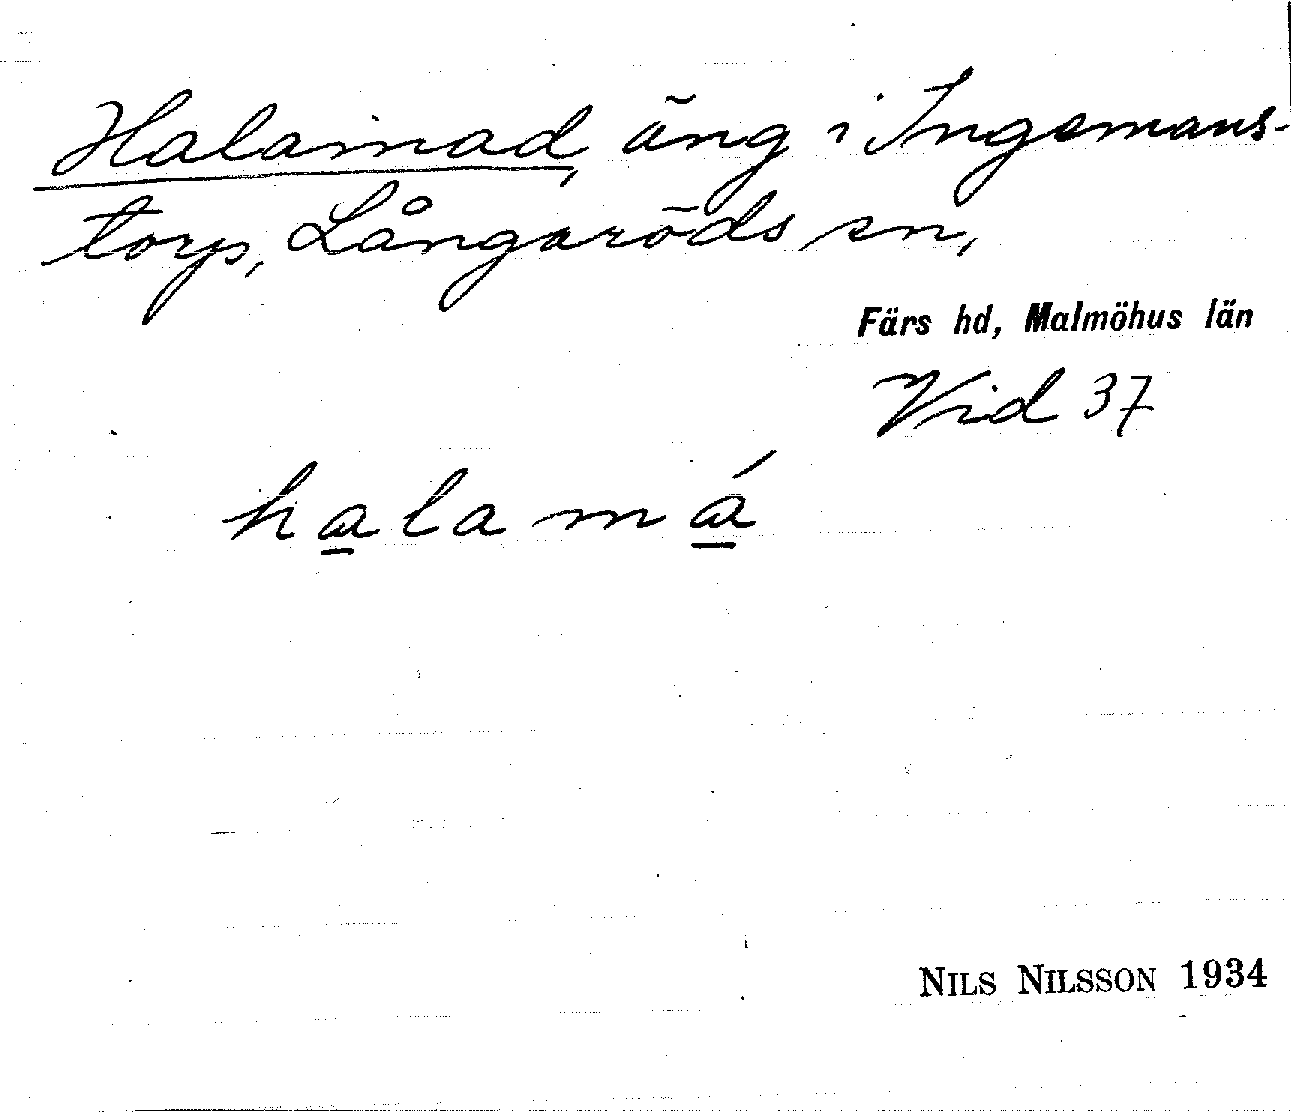 Halamad, äng i Ingemans-
torp, Långaröds sn,
Färs hd, Malmöhus län
Vid 37
halamá
NILS NILSSON 1934